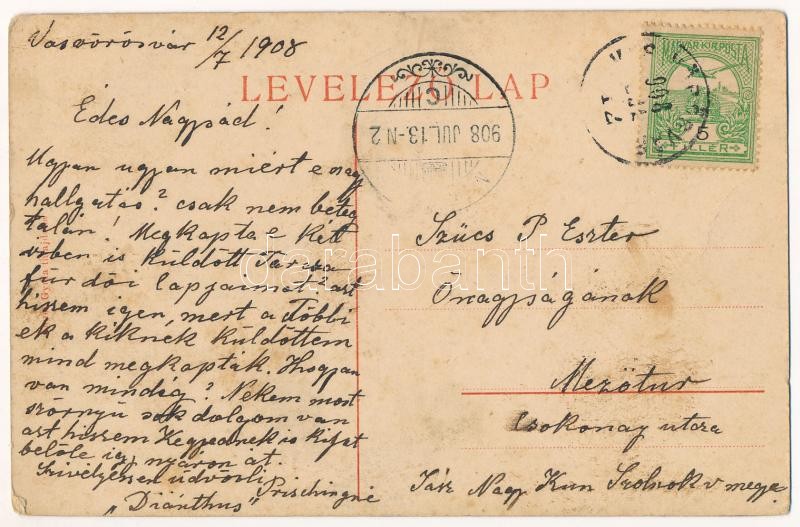 Vasvörösvár 12/7 1908
LEVELEZŐ-LAP
908 JUL.13.-N 2
MAGYAR KIR. POSTA
5
FILLÉR
Édes Nagysád!
Ugyan ugyan miért e nagy
hallgatás? csak nem beteg
talán! Megkapta e két
ivben is küldött Tarcsa
fürdői lapjaimat? azt
hiszem igen, mert a többi
ek a kiknek küldöttem
mind megkapták. Hogyan
van mindig? Nekem most
szörnyü sok dolgom van
azt hiszem Kegyednek is kifut
belőle így nyáron át.
Szivélyesen üdvözli
Prischingné
„Diánthus"
Szücs P. Eszter
Őnagyságának
Mezötur
Csokonay utcza
Jász Nagy Kun Szolnok v megye
darabanth